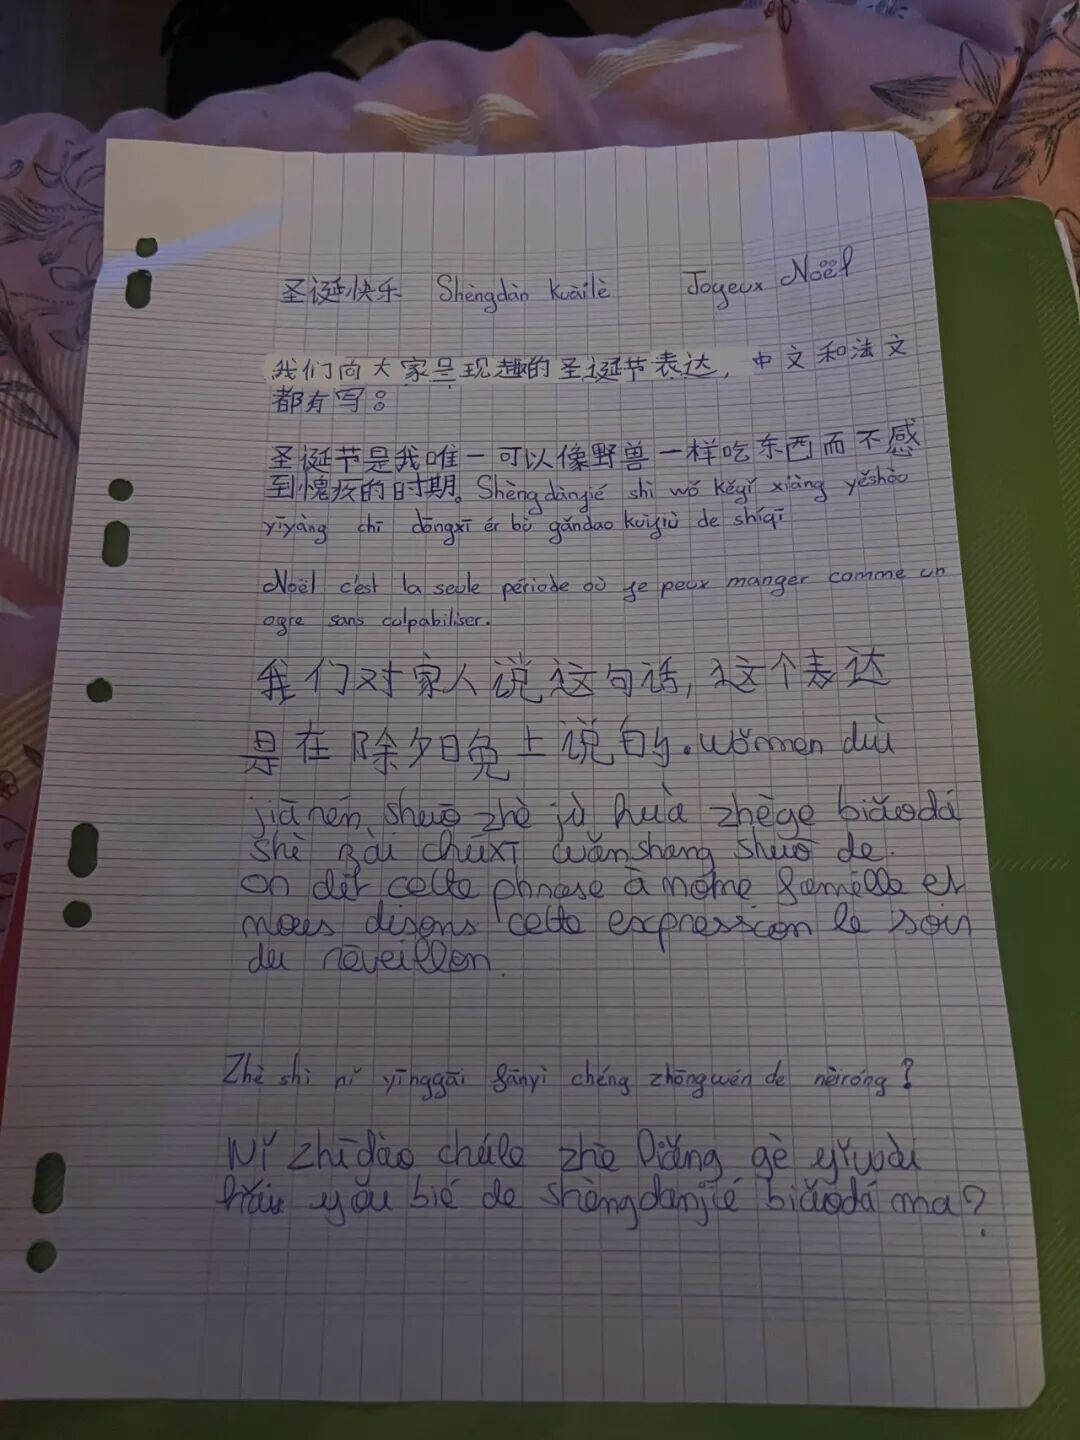 圣诞快乐 Shèngdàn Kuàilè Joyeux Noël
我们向大家呈现趣的圣诞节表达, 中文和法文
都有写:
圣诞节是我唯一可以像野兽一样吃东西而不感
到愧疚的时期。Shèngdànjié shì wǒ kěyǐ xiàng yěshòu
yīyàng chī dōngxī ér bù gǎndao kuìjiù de shíqī
Noël c'est la seule période où je peux manger comme un
ogre sans culpabiliser.
我们对家人说这句话, 这个表达
是在除夕晚上说的. wǒmen duì
jiārén shuō zhè jù huà zhège biǎodá
shè zài chúxī wǎnshang shuō de.
On dit cette phrase à notre famille et
nous disons cette expression le soir
du réveillon.
Zhè shì nǐ yīnggāi fānyì chéng zhōngwén de nèiróng?
Nǐ zhīdào chúle zhè liǎng gè yǐwài
hái yǒu bié de shèngdanjié biǎodá ma?